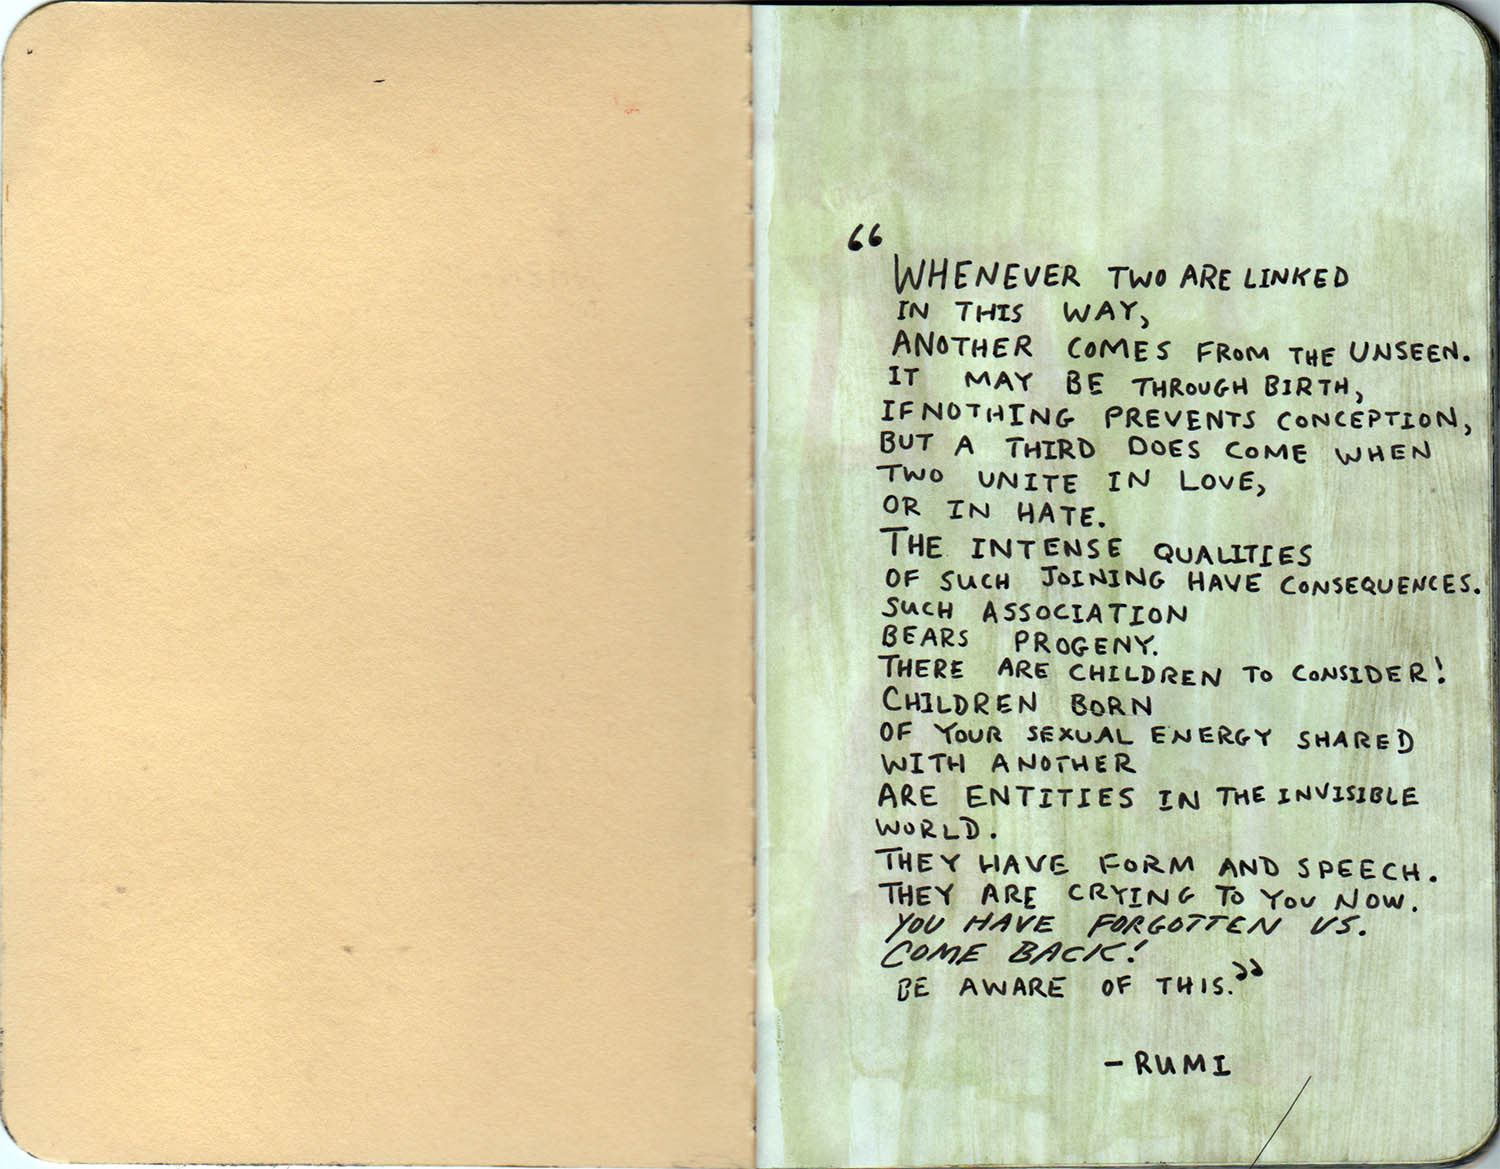 “
WHENEVER TWO ARE LINKED
IN THIS WAY,
ANOTHER COMES FROM THE UNSEEN.
IT MAY BE THROUGH BIRTH,
IF NOTHING PREVENTS CONCEPTION,
BUT A THIRD DOES COME WHEN
TWO UNITE IN LOVE,
OR IN HATE.
THE INTENSE QUALITIES
OF SUCH JOINING HAVE CONSEQUENCES.
SUCH ASSOCIATION
BEARS PROGENY.
THERE ARE CHILDREN TO CONSIDER!
CHILDREN BORN
OF YOUR SEXUAL ENERGY SHARED
WITH ANOTHER
ARE ENTITIES IN THE INVISIBLE
WORLD.
THEY HAVE FORM AND SPEECH.
THEY ARE CRYING TO YOU NOW.
YOU HAVE FORGOTTEN US.
COME BACK!
BE AWARE OF THIS.”
- RUMI